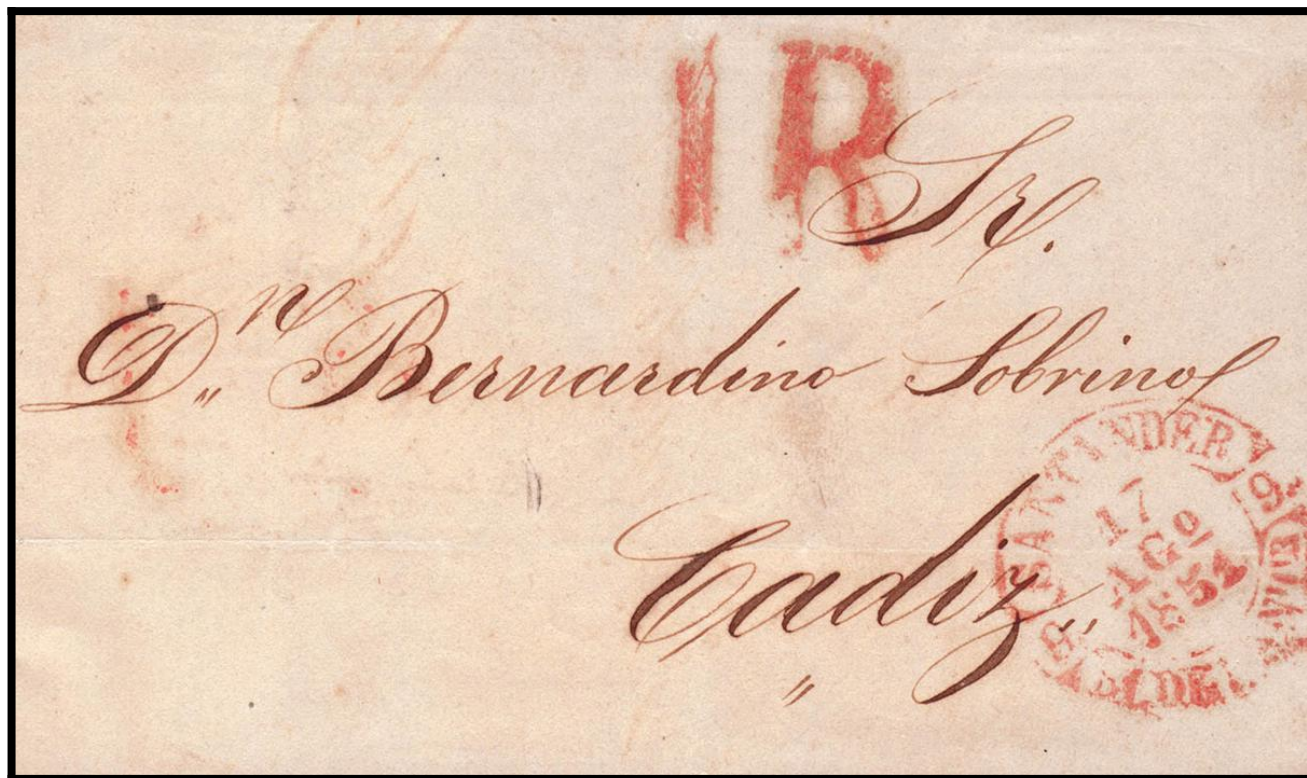 1R
Sr.
Dn Bernardino Sobrino
Cadiz
SANTANDER
17
AGO